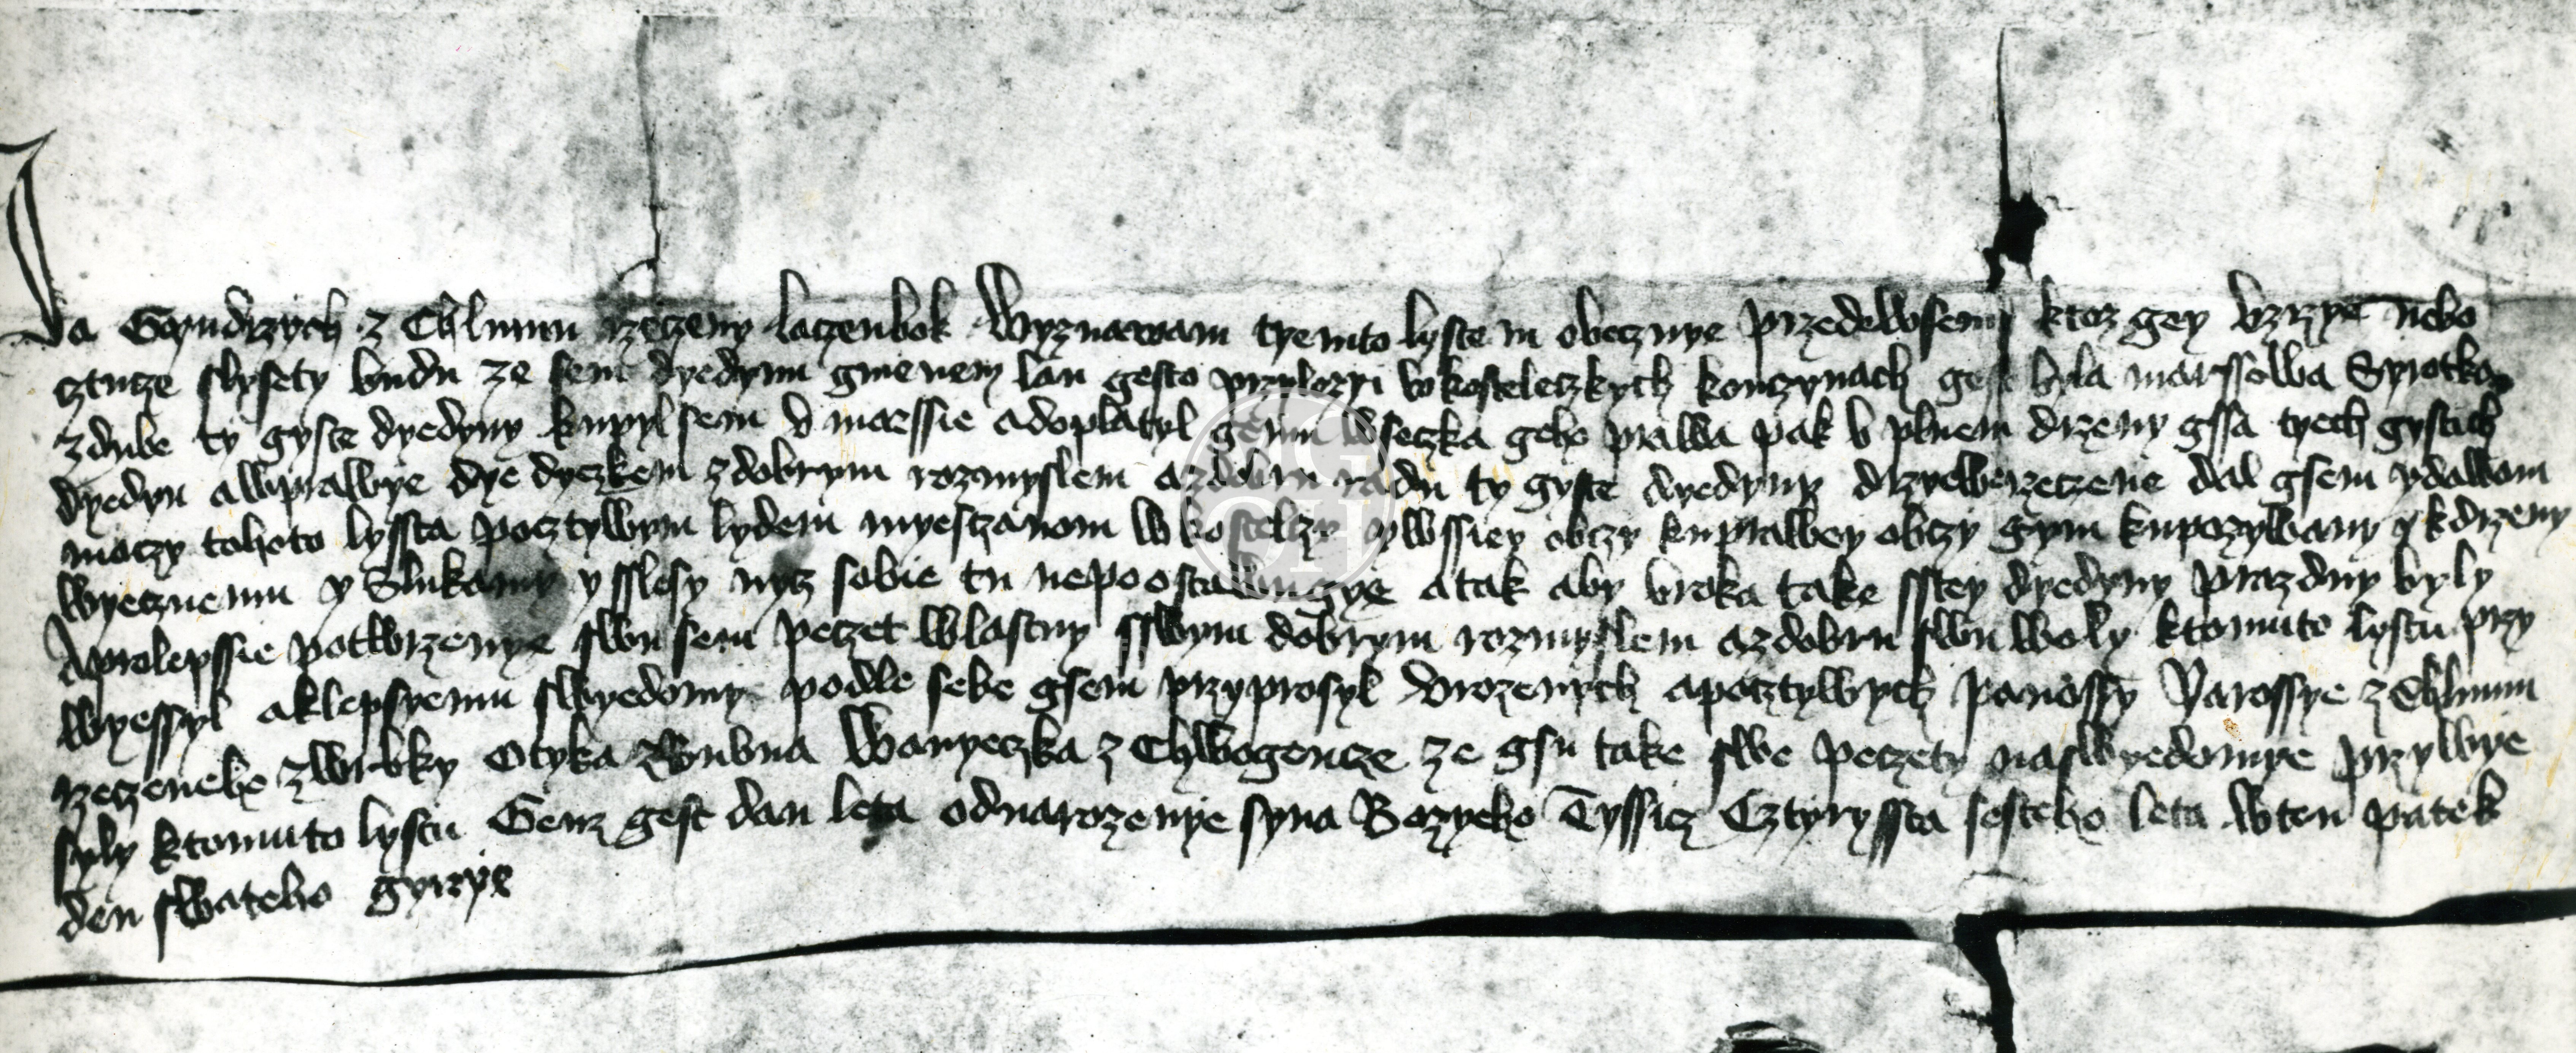 Ja Gyndrzych z Chlumu rzeczeny laczenbok Wyznawam tyemto lystem obecznye przedewssemy ktoz gey vzrzye nebo
cztucze slysety budu ze sem dyedynu gmenem lan gesto przylozyi vkosteleczkych konczynach gest byla marssowa Syrotka
zdube ty gyste dyedyny kupyl sem v marssie adoplatyl gemu wseczka geho prawa pak v plnem drzeny gssa tyech gystich
dyedyn awprawye dyedyczkem zdobrym rozmyslem azdobru radu ty gyste dyedyny drzyewerzeczene dal gsem ydawam
moczy tohoto lyssta pocztywym lydem myesczanom wkostelczy ywssiey obczy kuprawey obczy gym kupozywany ykdrzeny
wyecznemu y slukamy y sslesy nycz sobie tu nepoostawugye atak aby vroka take sstey dyedyny prazdny byly
Aprolepssie potwrzenye swu sem peczet wlastny sswym dobrym rozmyslem azdobru swu woly ktomuto lystu przy
wyessyl aklepsyemu swyedomy podle sebe gsem przyprosyl vrozenych apocztywych panossy Yarossye z Chlumu
rzeczeneho zwrbky Otyka z Bubna Wanyeczka z Chwogencze ze gsu take swe peczety naswyedomye przywye
syly ktomuto lystu Genz gest dan leta odnarozenye syna Bozyeho Tyssicz Cztyryssta sesteho leta wten patek
den swateho gyrzye